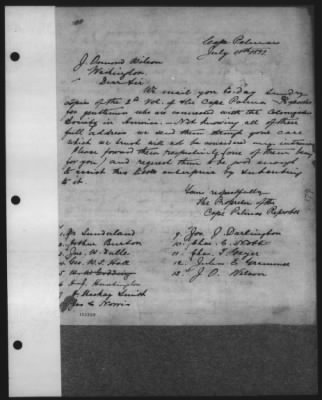 Cape Palmas
July 11th 1892
J. Ormond Wilson
Washington.
Dear Sir
We mail you to-day Sundry
copies of the 2d Vol. of the Cape Palmas Reporter
for gentlemen who are connected with the Colonization
Society in America. Not knowing all of their
full address we send them through your care
which we trust will not be considered any intrusion
Please forward them respectively (one of them being
for you) and request them to be good enough
to assist this little enterprise by subscribing
to it
Your respectfully
The Proprietor of the
Cape Palmas Reporter
1. Dr Sunderland
2 Arthur Burtson
3 Jno. W.
4 Geo. W. S. Hall
5
6 Huntington
7 Mackay Smith
8 Jas C Norris
9. J. Darlington
10. Chas C. Nott
11. Chas. T. Geyer
12. Julian E
13. J. O. Wilson